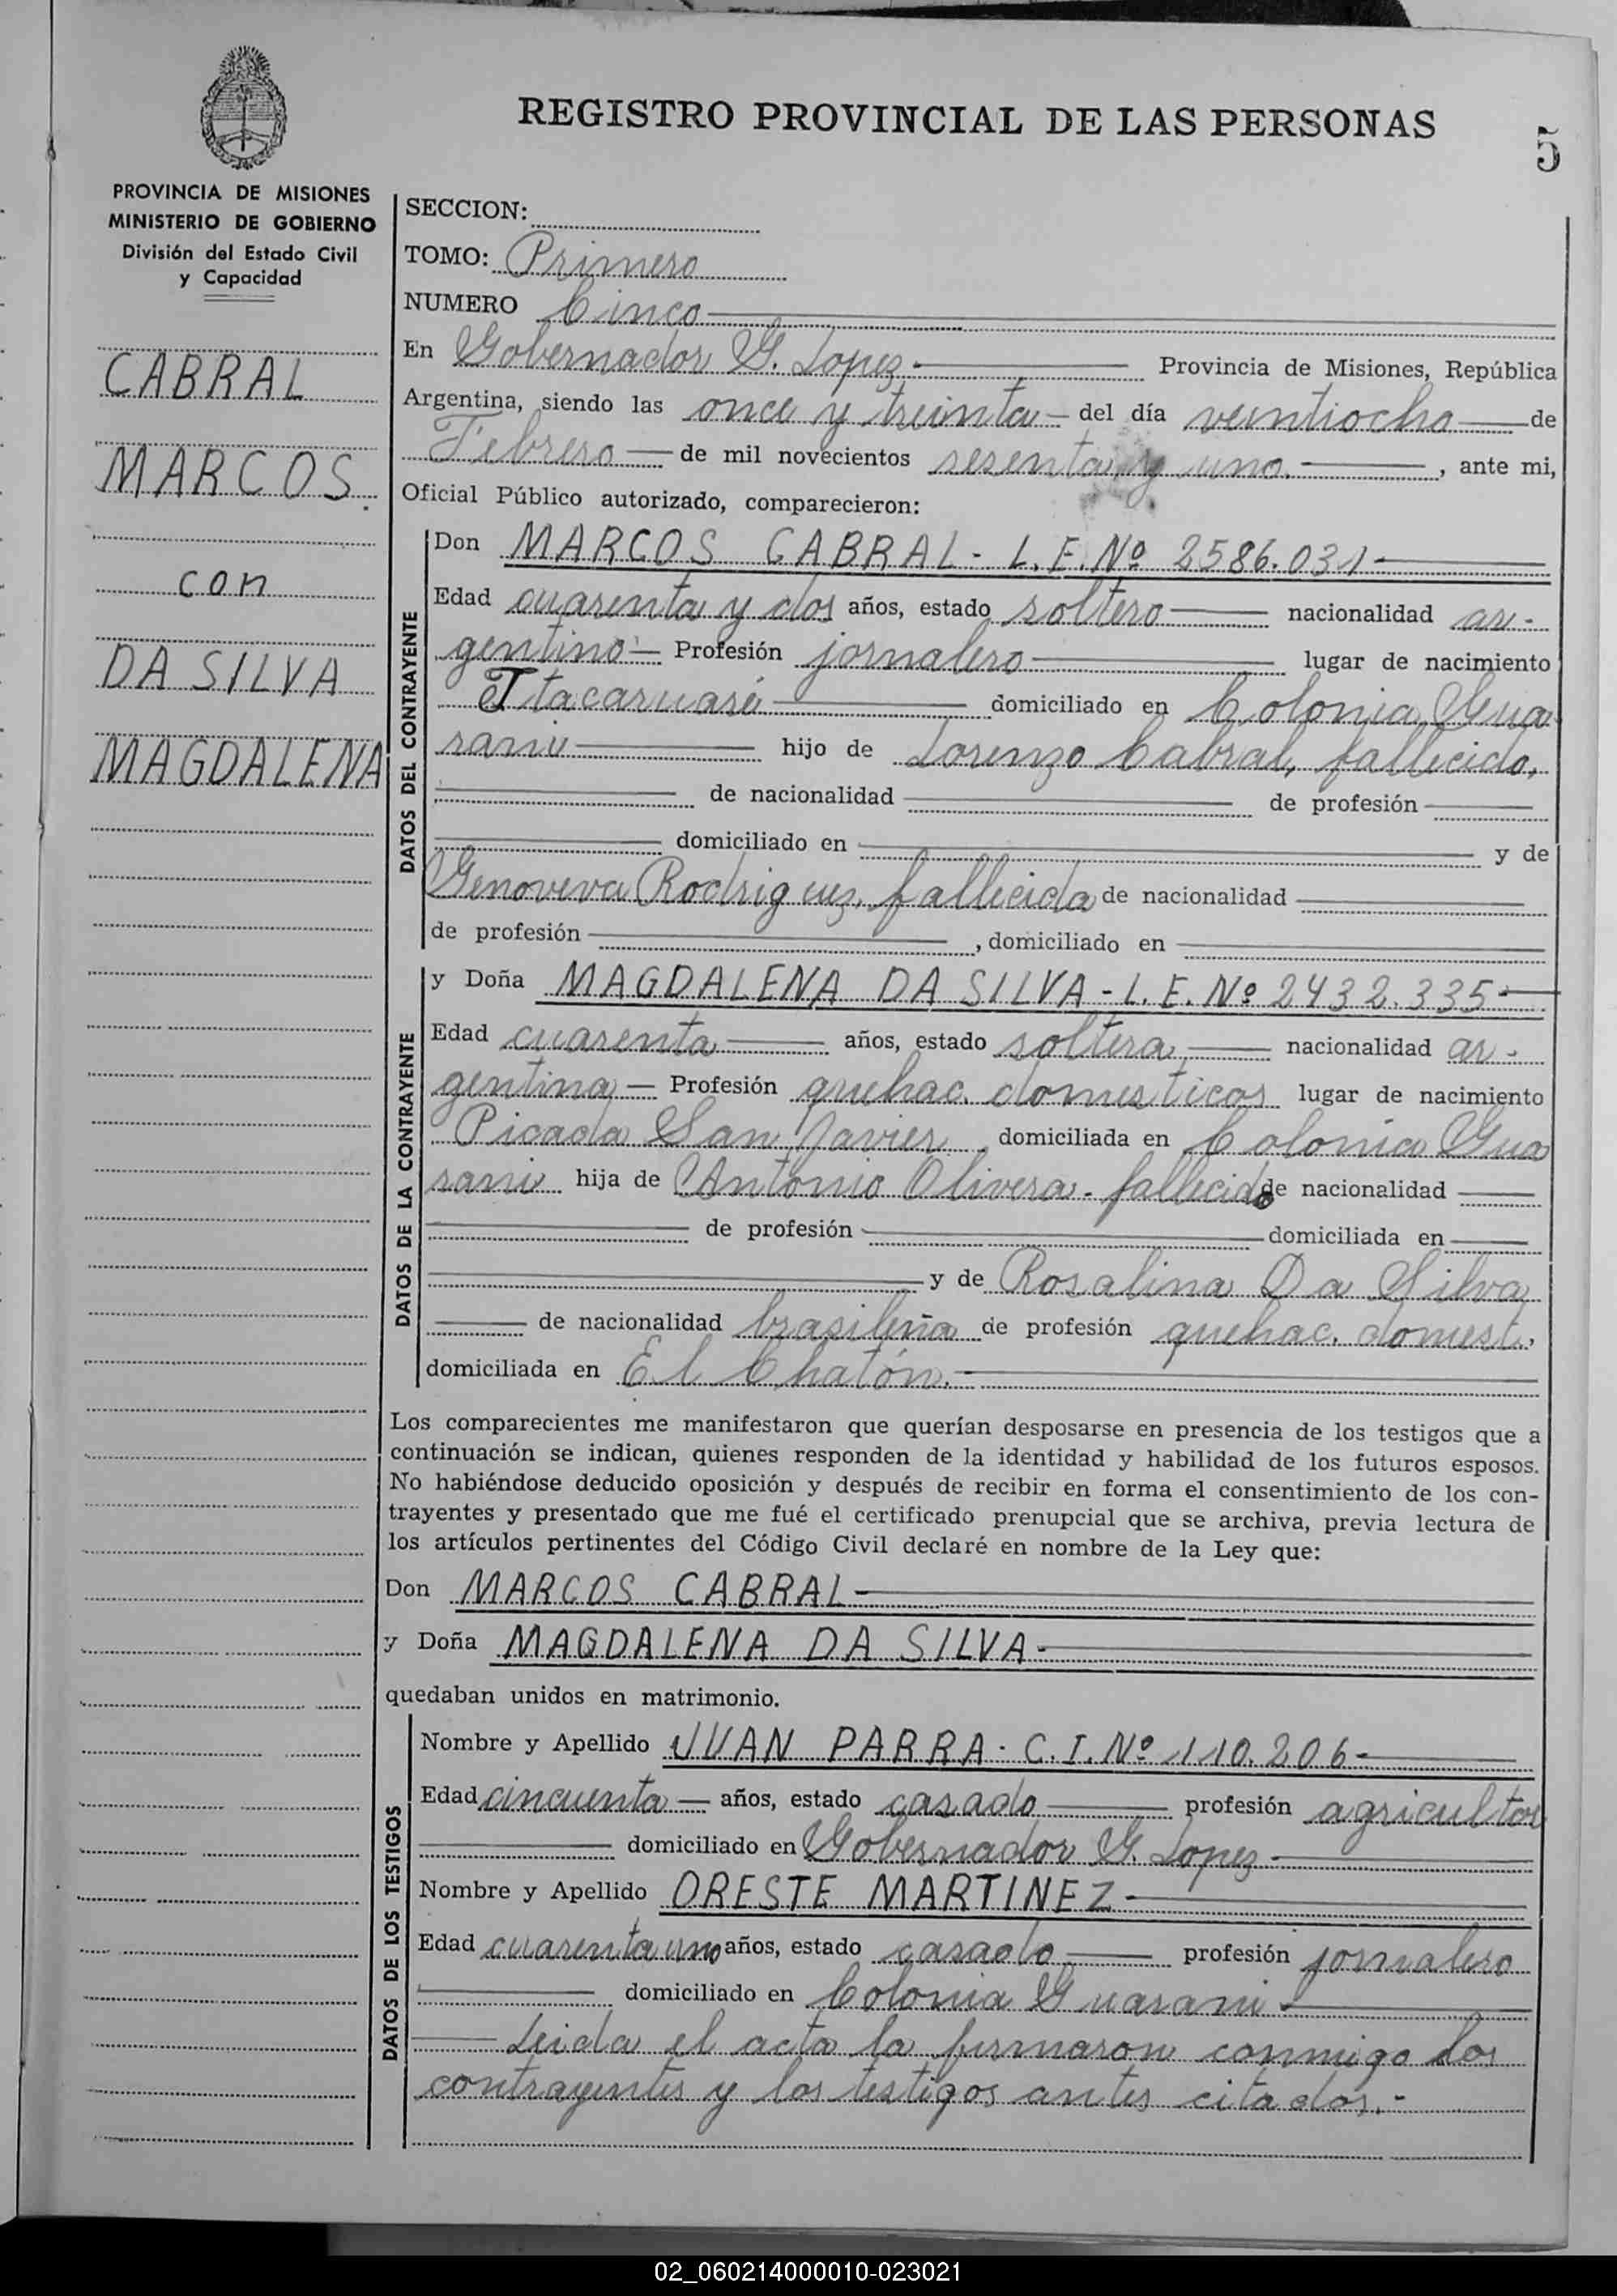 REGISTRO PROVINCIAL DE LAS PERSONAS
5
PROVINCIA DE MISIONES
MINISTERIO DE GOBIERNO
División del Estado Civil
y Capacidad
CABRAL
MARCOS.
con
DA SILVA
MAGDALENA
SECCION:
TOMO: Primero
NUMERO Cinco
En Gobernador G. Lopez Provincia de Misiones, República
Argentina, siendo las once y treinta del día veintiocho de
Febrero de mil novecientos sesenta y uno. , ante mi,
Oficial Público autorizado, comparecieron:
DATOS DEL CONTRAYENTE
Don MARCOS CABRAL - L.E. Nº 2586.031-
Edad cuarenta y dos años, estado soltero nacionalidad ar-
gentino Profesión jornalero lugar de nacimiento
Itacaruaré domiciliado en Colonia Gua
rani hijo de Lorenzo Cabral, fallecido,
de nacionalidad de profesión
domiciliado en y de
Genoveva Rodriguez, fallecida de nacionalidad
de profesión , domiciliado en
DATOS DE LA CONTRAYENTE
y Doña MAGDALENA DA SILVA - L.E. Nº 2432.335-
Edad cuarenta años, estado soltera nacionalidad ar-
gentina Profesión quehac. domesticos lugar de nacimiento
Picada San Javier domiciliada en Colonia Gua
rani hija de Antonio Olivera - fallecido de nacionalidad
de profesión domiciliada en
y de Rosalina Da Silva
de nacionalidad brasileña de profesión quehac. domest.,
domiciliada en El Chatón.-
Los comparecientes me manifestaron que querían desposarse en presencia de los testigos que a
continuación se indican, quienes responden de la identidad y habilidad de los futuros esposos.
No habiéndose deducido oposición y después de recibir en forma el consentimiento de los con-
trayentes y presentado que me fué el certificado prenupcial que se archiva, previa lectura de
los artículos pertinentes del Código Civil declaré en nombre de la Ley que:
Don MARCOS CABRAL
y Doña MAGDALENA DA SILVA-
quedaban unidos en matrimonio.
DATOS DE LOS TESTIGOS
Nombre y Apellido JUAN PARRA - C.I. Nº 110.206-
Edad cincuenta años, estado casado profesión agricultor
domiciliado en Gobernador G. Lopez-
Nombre y Apellido ORESTE MARTINEZ-
Edad cuarenta uno años, estado casado profesión jornalero
domiciliado en Colonia Guarani-
Leida el acta la firmaron conmigo los
contrayentes y los testigos antes citados.-
02_060214000010-023021